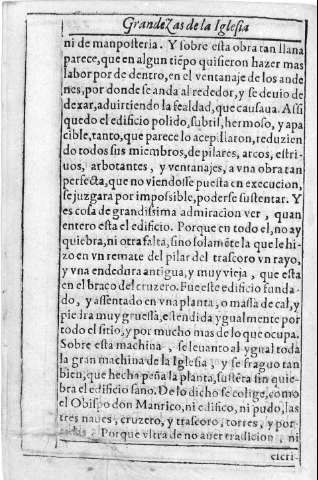 Grandezas de la Iglesia
ni de manposteria. Y sobre esta obra tan llana
parece, que en algun tiẽpo quisieron hazer mas
labor por de dentro, en el ventanaje de los ande
nes, por donde se anda al rededor, y se deuio de
dexar, aduirtiendo la fealdad, que causaua. Assi
quedo el edificio polido, subtil, hermoso, y apa
cible, tanto, que parece lo acepillaron, reduzien
do todos sus miembros, de pilares, arcos, estri-
uos, arbotantes, y ventanajes, a vna obra tan
perfecta, que no viendosse puesta en execucion,
se juzgara por impossible, poderse sustentar. Y
es cosa de grandissima admiracion ver, quan
entero esta el edificio. Porque en todo el, no ay
quiebra, ni otra falta, sino solamẽte la que le hi-
zo en vn remate del pilar del trascoro vn rayo,
y vna endedura antigua, y muy vieja, que esta
en el braço del cruzero. Fue este edificio funda-
do, y assentado en vna planta, o massa de cal, y
piedra muy gruessa, estendida ygualmente por
todo el sitio, y por mucho mas de lo que ocupa.
Sobre esta machina, se leuanto al ygual toda
la gran machina de la Iglesia, y se fraguo tan
bien, que hecha peña la planta, sustẽta sin quie-
bra el edificio sano. De lo dicho se colige, como
el Obispo don Manrico, ni edifico, ni pudo, las
tres naues, cruzero, y trascoro, torres, y por-
Porque vltra de no auer tradicion, ni